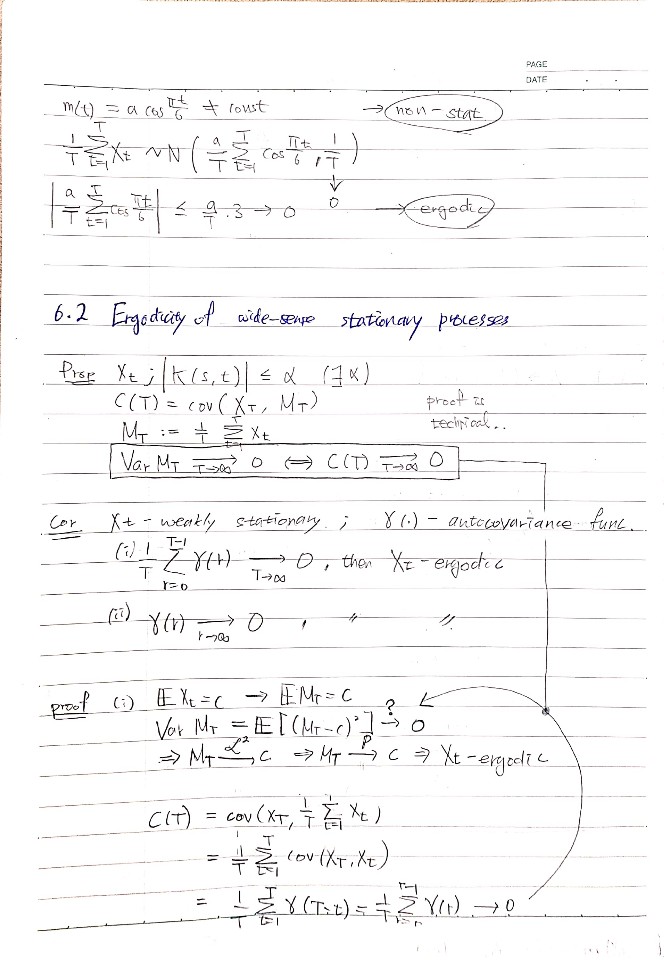 PAGE
DATE
m(t) = a cos πt/6 ≠ const → non-stat
1/T Σ_{t=1}^{T} Xt ~ N ( a/T Σ_{t=1}^{T} cos πt/6 , 1/T )
↓
0
| a/T Σ_{t=1}^{T} cos πt/6 | ≤ a/T · 3 → 0 → ergodic
6.2 Ergodicity of wide-sense stationary processes
Prop Xt ; |K(s,t)| ≤ α (∃α)
C(T) = cov(X_T, M_T)
proof is
technical..
M_T := 1/T Σ_{t=1}^{T} Xt
Var M_T →_{T→∞} 0 ⟺ C(T) →_{T→∞} 0
Cor Xt - weakly stationary ; γ(·) - autocovariance func.
(i) 1/T Σ_{r=0}^{T-1} γ(r) →_{T→∞} 0, then Xt - ergodic
(ii) γ(r) →_{r→∞} 0 , " "
proof (i) 𝔼Xt = c → 𝔼M_T = c
Var M_T = 𝔼[(M_T - c)²] →^{?} 0
⇒ M_T →^{ℒ²} c ⇒ M_T →^{P} c ⇒ Xt - ergodic
C(T) = cov(X_T, 1/T Σ_{t=1} Xt)
= 1/T Σ_{t=1}^{T} cov(X_T, Xt)
= 1/T Σ_{t=1}^{T} γ(T-t) = 1/T Σ γ(r) → 0